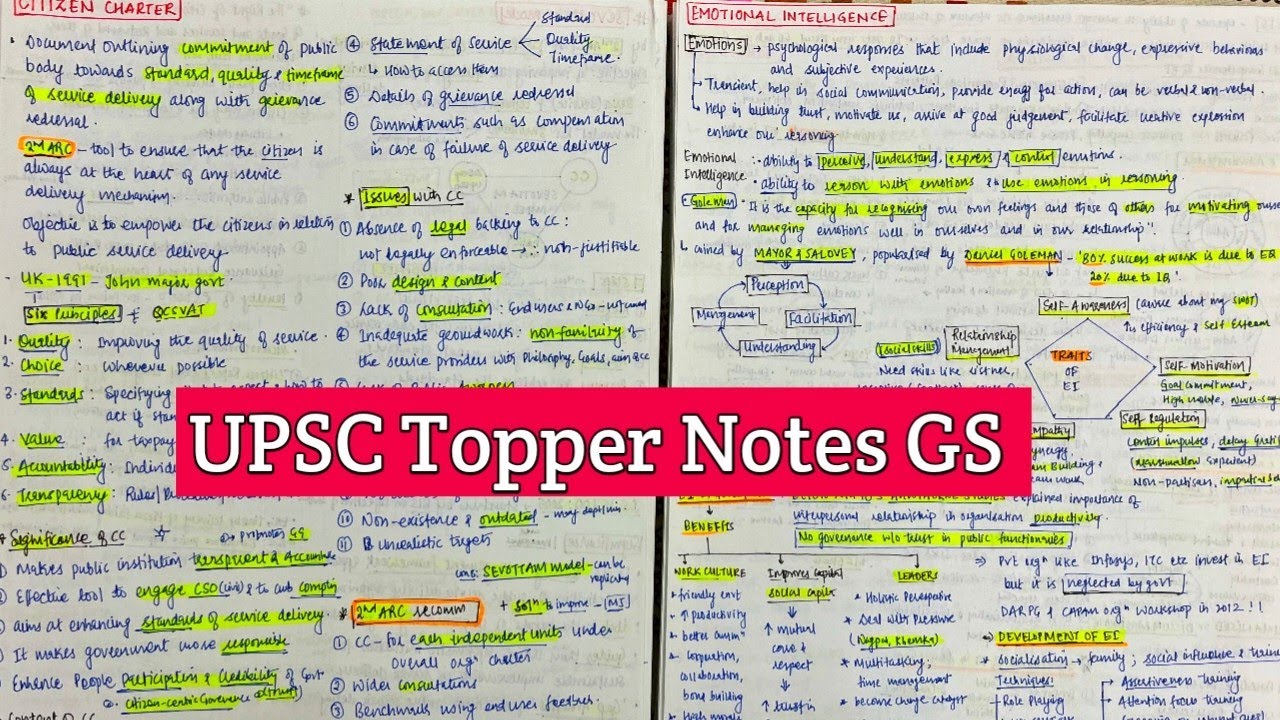 CITIZEN CHARTER
• Document outlining commitment of public
body towards standard, quality & timeframe
of service delivery along with grievance
redressal.
2nd ARC - tool to ensure that the citizen is
always at the heart of any service
delivery mechanism.
Objective is to empower the citizens in relation
to public service delivery
- UK-1991 - John major govt
Six Principles QCSVAT
1. Quality: Improving the quality of service.
2. Choice: wherever possible
3. Standards: Specifying
act if stan
4. Value: for taxpay
5. Accountability: Individ
6. Transparency: Rules/
* Significance of CC → promotes GG
Makes public institution transparent & Accountable
Effective tool to engage CSO(civil) & to curb
aims at enhancing standards of service delivery.
It makes government more responsible
Enhance People participation & Credibility of Govt
citizen-centric Governance
④ Statement of service Standard
Quality
Timeframe.
↳ How to access them
⑤ Details of grievance redressal
⑥ Commitment such as compensation
in case of failure of service delivery
* Issues with CC
① Absence of legal backing to CC:
not legally enforceable → non-justifiable
② Poor design & content
③ Lack of Consultation: End users & NGO -
④ Inadequate groundwork: non-familiarity of
the service providers with Philosophy, Goals,
UPSC Topper Notes GS
⑩ Non-existence & outdated - many
⑪ Unrealistic targets
SEVOTTAM model - can be
* 2nd ARC recomm + Soln to improve -
① CC - for each independent units under
overall orgn charter
② Wider consultations
③ Benchmark using end user feedback.
EMOTIONAL INTELLIGENCE
Emotions → psychological responses that include physiological change, expressive behaviours
and subjective experiences.
→ Transient, help in social communication, provide energy for action, can be verbal & non-verbal.
→ Help in building trust, motivate us, arrive at good judgement, facilitate creative expression
enhance our reasoning
Emotional
Intelligence
: • ability to perceive, understand, express & control emotions.
• ability to reason with emotions & use emotions in reasoning
Goleman • It is the capacity for recognising our own feelings and those of others for motivating
and for managing emotions well in ourselves and in our relationship'.
↳ coined by MAYOR & SALOVEY, popularised by Daniel GOLEMAN - '80% success at work is due to EQ
20% due to IQ'
Perception
Management
Facilitation
Understanding
Self-Awareness (aware about my SWOT)
efficiency & Self Esteem
Relationship
Management
(social skills)
Need skills like listner,
TRAITS
OF
EI
Self Motivation
Goal commitment,
Self regulation
Control impulses, delay
(Marshmallow Experiment)
Non-partisan,
explained importance of
interpersonal relationship in organisation productivity.
No governance w/o trust in public functionaries
BENEFITS
WORK CULTURE
* friendly
* ↑ productivity
* better
* cooperation,
collaboration,
bond building
* High morale
Improves
social capital
↑ mutual
care &
respect
↑ trust in
LEADERS
* Holistic Perspective
* Deal with Pressure
* Multitasking;
time management
* become change catalyst
⇒ Pvt orgn like Infosys, ITC etc invest in EI
but it is neglected by govt
DARPG & orgn Workshop in 2012!!
⇒ DEVELOPMENT OF EI
* Socialisation → family; social influence &
Techniques:
→ Role Playing
→ Assertiveness training
→ Attention focus training